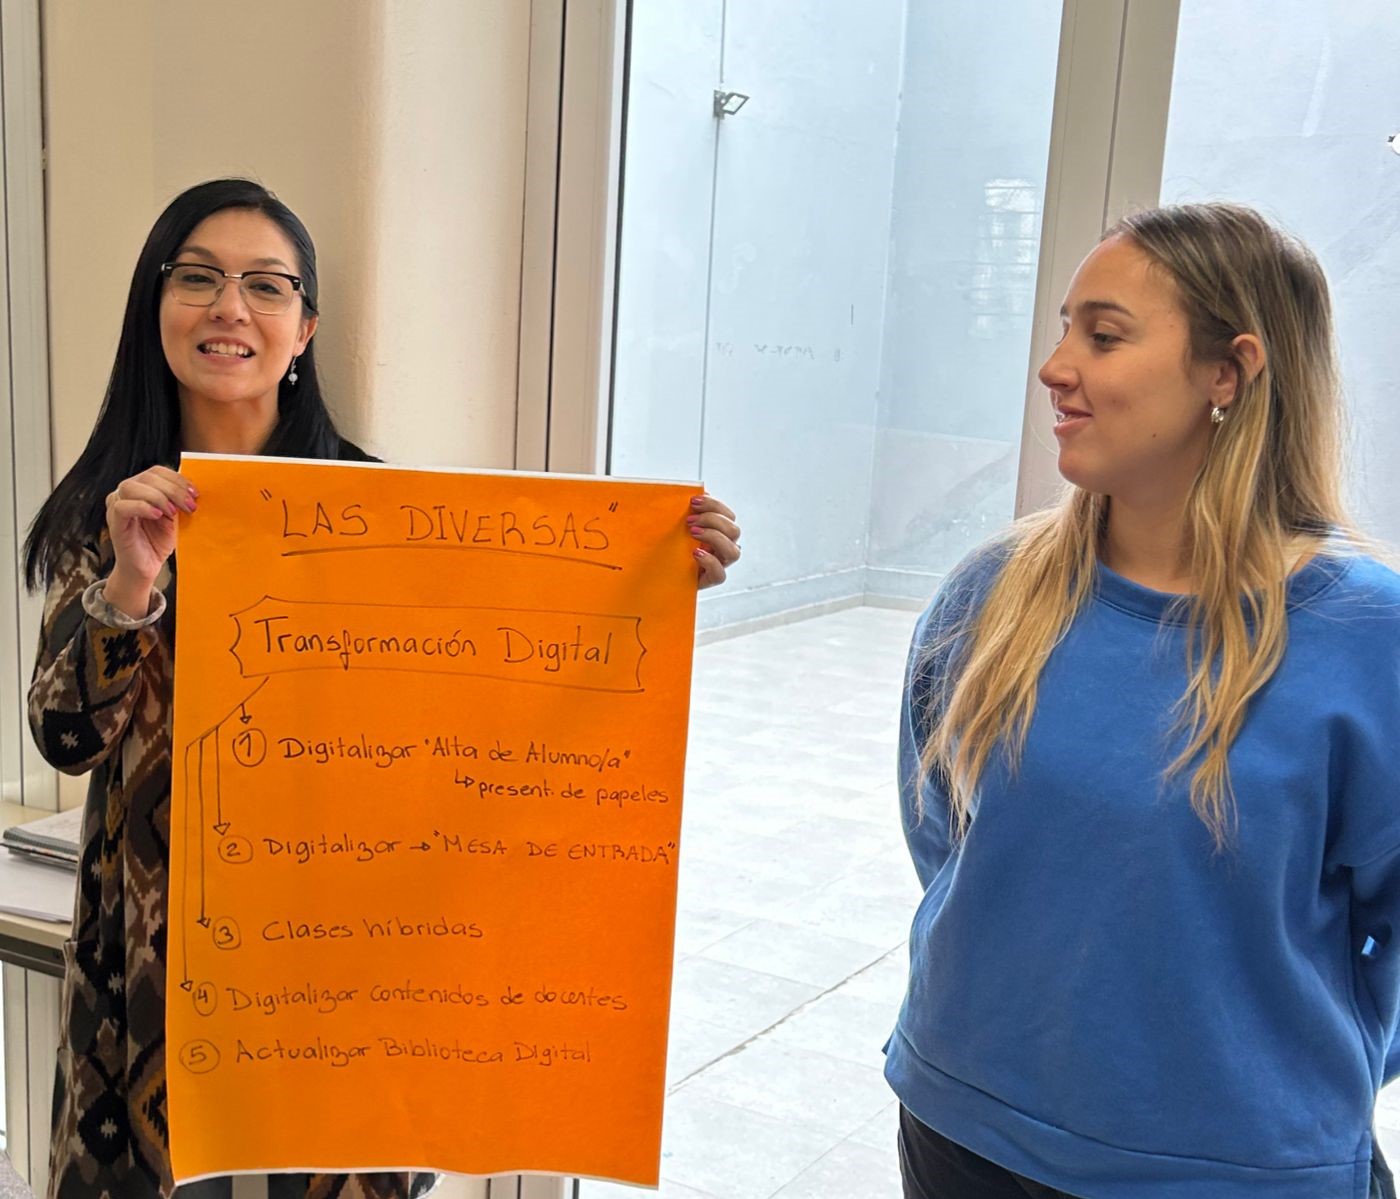 "LAS DIVERSAS"
Transformación Digital
1 Digitalizar "Alta de Alumno/a"
↳ present. de papeles
2 Digitalizar → "MESA DE ENTRADA"
3 Clases híbridas
4 Digitalizar contenidos de docentes
5 Actualizar Biblioteca Digital